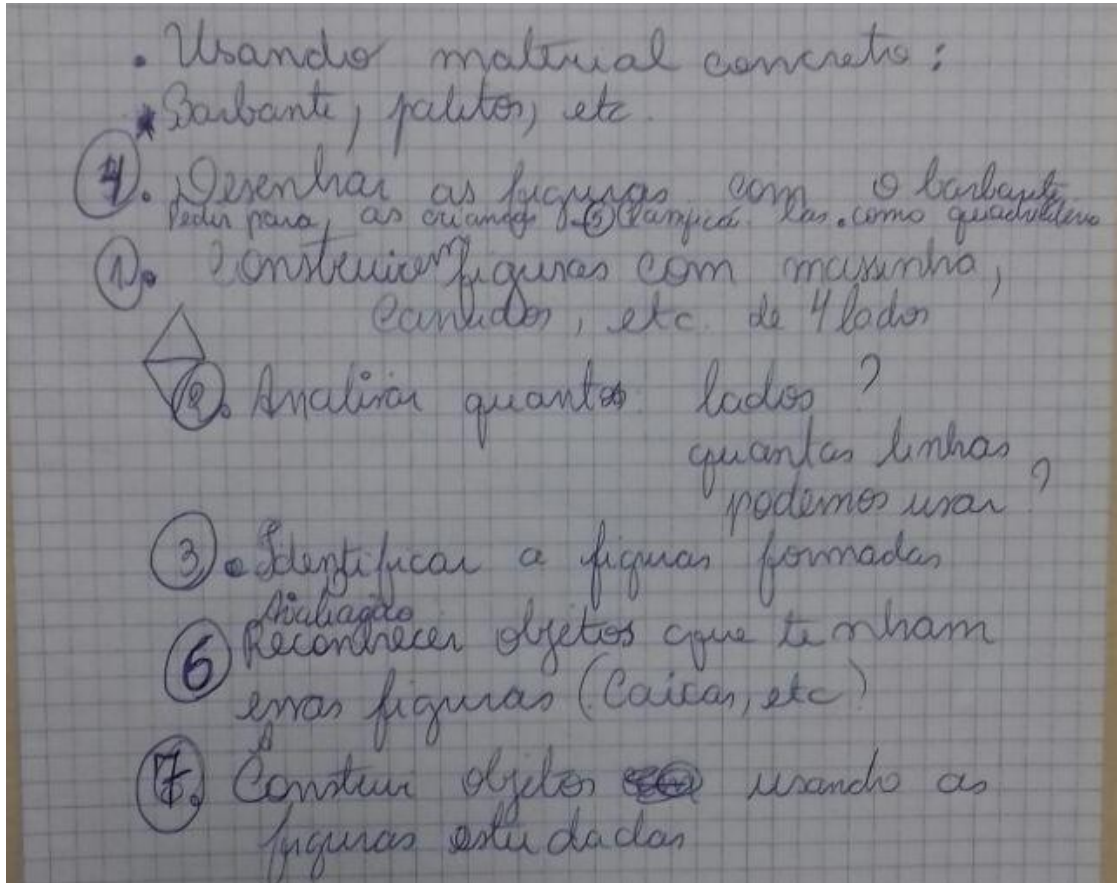 • Usando material concreto:
* Barbante, palitos, etc.
4. Desenhar as figuras com o barbante
Pedir para as crianças 5 las como quadrilátero
1. Construirem figuras com massinha,
Canudos, etc. de 4 lados
2. Analisar quantos lados?
quantas linhas
podemos usar?
3. Identificar a figuras formadas
Avaliação
6 Reconhecer objetos que tenham
essas figuras (Caixas, etc)
7. Construir objetos usando as
figuras estudadas